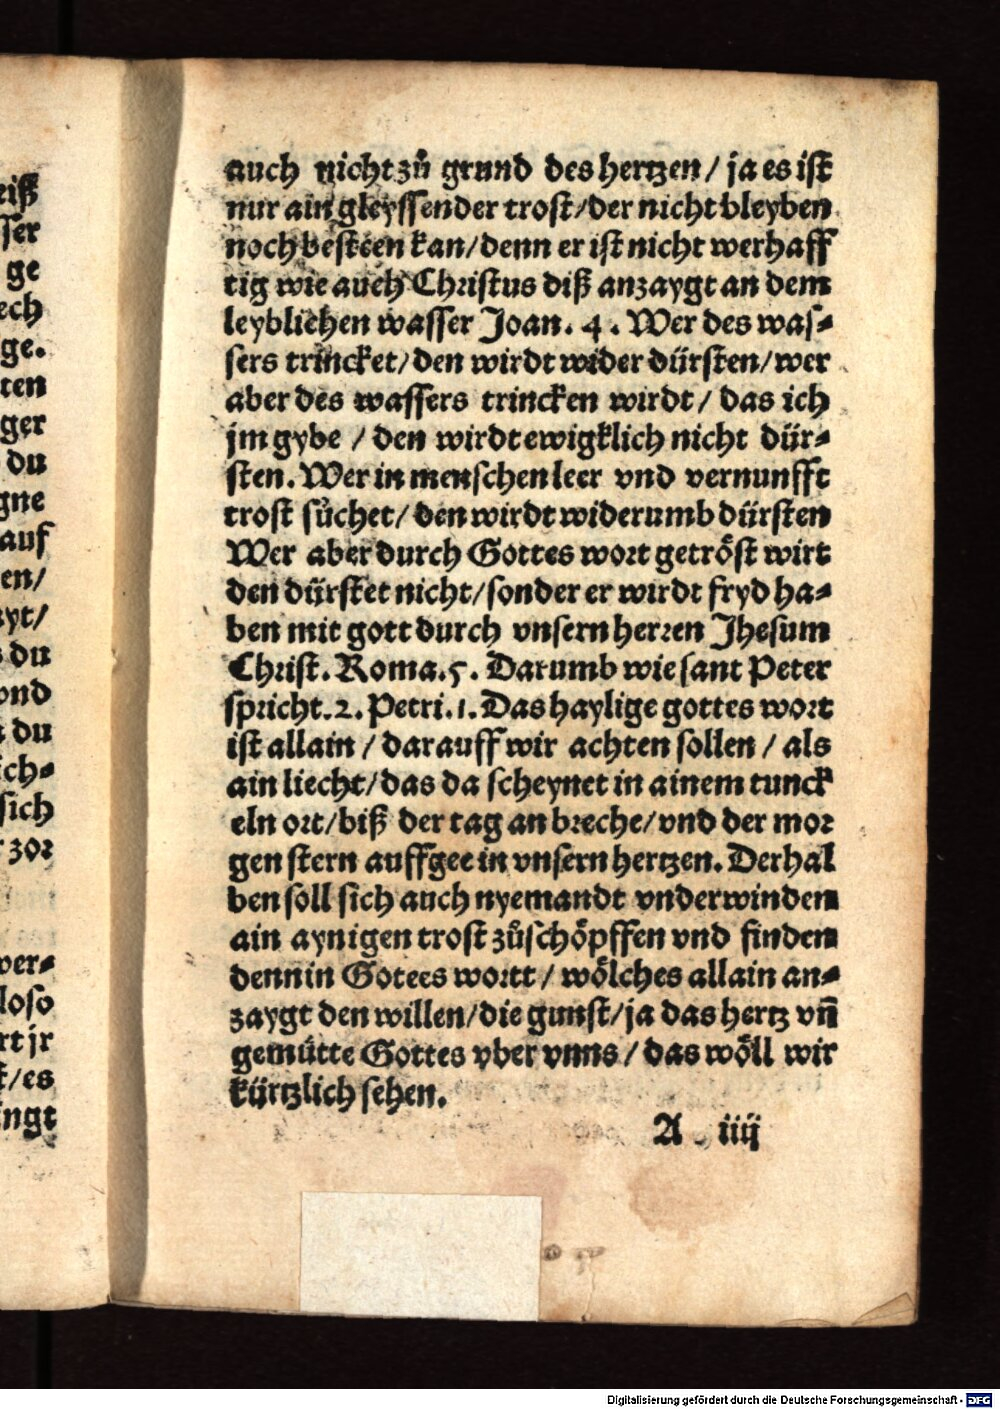 auch nicht zů grund des hertzen / ja es ist
nur ain gleyssender trost / der nicht bleyben
noch besteen kan / denn er ist nicht werhaff
tig wie auch Christus diß anzaygt an dem
leyblichen wasser Joan. 4. Wer des was⸗
sers trincket / den wirdt wider dürsten / wer
aber des wassers trincken wirdt / das ich
jm gybe / den wirdt ewigklich nicht dür⸗
sten. Wer in menschen leer vnd vernunfft
trost sůchet / den wirdt widerumb dürsten
Wer aber durch Gottes wort getröst wirt
den dürstet nicht / sonder er wirdt fryd ha⸗
ben mit gott durch vnsern herren Jhesum
Christ. Roma. 5. Darumb wie sant Peter
spricht. 2. Petri. 1. Das haylige gottes wort
ist allain / darauff wir achten sollen / als
ain liecht / das da scheynet in ainem tunck
eln ort / biß der tag an breche / vnd der mor
gen stern auffgee in vnsern hertzen. Derhal
ben soll sich auch nyemandt vnderwinden
ain aynigen trost zůschöpffen vnd finden
denn in Gotees wortt / wölches allain an⸗
zaygt den willen / die gunst / ja das hertz vn̄
gemütte Gottes vber vnns / das wöll wir
kürtzlich sehen.
A iiij
riß
sser
ge
ech
ge.
ten
ger
du
gne
auf
en /
yt /
du
ond
du
ich⸗
sich
zor
ver⸗
loso
rt jr
/ es
ingt
Digitalisierung gefördert durch die Deutsche Forschungsgemeinschaft - DFG